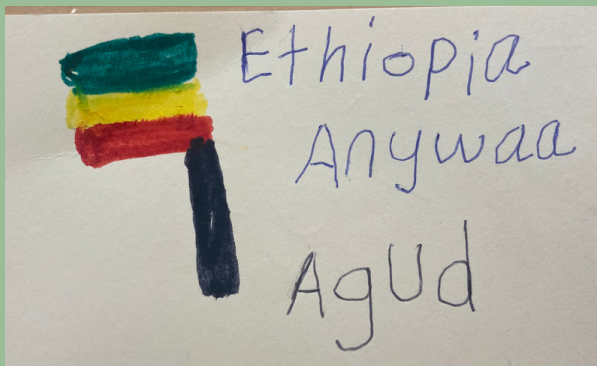 Ethiopia
Anywaa
Agud